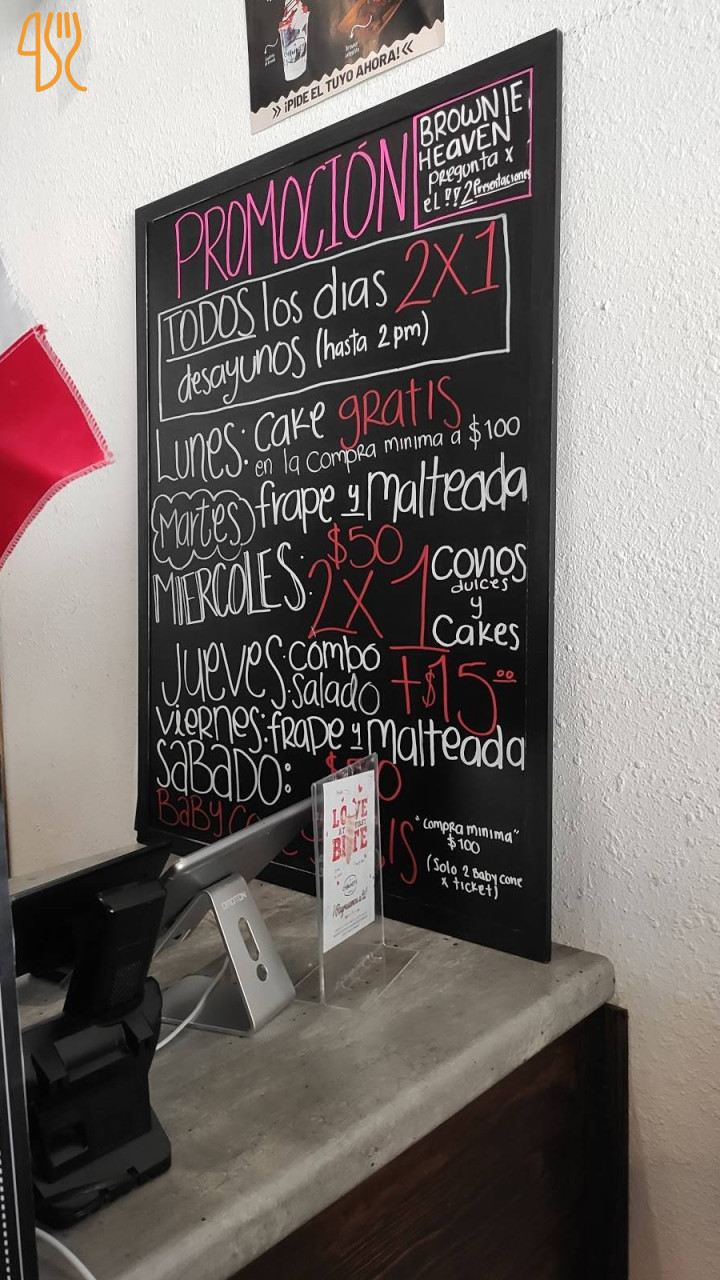 » ¡PIDE EL TUYO AHORA! «
PROMOCIÓN
BROWNIE
HEAVEN
pregunta x
el !! 2 Presentaciones
TODOS los dias 2X1
desayunos (hasta 2 pm)
Lunes: Cake gratis
en la compra minima d $100
Martes frape y Malteada
$50
MIERCOLES: 2X1 CONOS
dulces
y
Cakes
JUEVES: combo
salado +$15.00
viernes: frape y Malteada
SABADO:
BaBY
"compra minima"
$100
(Solo 2 Baby cone
x ticket)
LOVE
AT FIRST
BITE
OMOTON